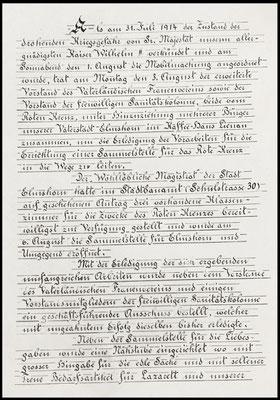 Als am 31. Juli 1914 der Zustand der
drohenden Kriegsgefahr von Sr. Majestät unserm aller-
gnädigsten Kaiser Wilhelm II verkündet und am
Sonnabend den 1. August die Mobilmachung angeordnet
wurde, trat am Montag den 3. August der erweiterte
Vorstand des Vaterländischen Frauenvereins sowie der
Vorstand der freiwilligen Sanitätskolonne, beide vom
Roten Kreuz, unter Hinzuziehung mehrerer Bürger
unserer Vaterstadt Elmshorn im Kaffee-Haus
zusammen, um die Erledigung der Vorarbeiten für die
Errichtung einer Sammelstelle für das Rote Kreuz
in die Wege zu leiten.
Der "Wohllöbliche Magistrat" der Stadt
Elmshorn hatte im Stadtbauamt (Schulstrasse 30)
auf geschehenen Antrag drei vorhandene Klassen-
zimmer für die Zwecke des Roten Kreuzes bereit-
willigst zur Verfügung gestellt und wurde am
6. August die Sammelstelle für Elmshorn und
Umgegend eröffnet.
Mit der Erledigung der sich ergebenden
umfangreichen Arbeiten wurde neben dem Vorstand
des Vaterländischen Frauenvereins und einigen
Vorstandsmitgliedern der freiwilligen Sanitätskolonne
ein geschäftsführender Ausschuss bestellt, welcher
mit ungeahntem Erfolg dieselben bisher erledigte.
Neben der Sammelstelle für die Liebes-
gaben wurde eine Nähstube eingerichtet wo mit
grosser Hingabe für die edle Sache und mit seltener
Treue Bedarfsartikel für Lazarett und unserer